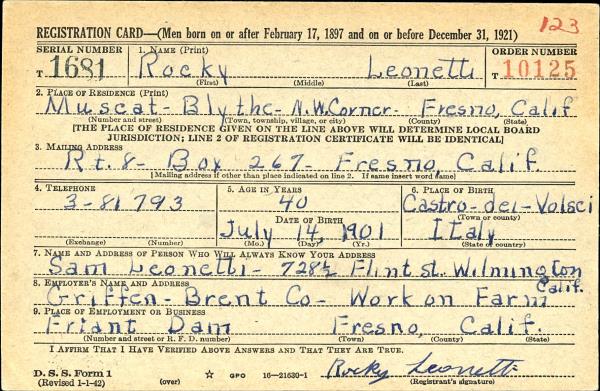 123
REGISTRATION CARD—(Men born on or after February 17, 1897 and on or before December 31, 1921)
SERIAL NUMBER 1. NAME (Print) ORDER NUMBER
T 1681 Rocky Leonetti T 10125
(First) (Middle) (Last)
2. PLACE OF RESIDENCE (Print)
Muscat - Blythe - N.W. Corner - Fresno, Calif
(Number and street) (Town, township, village, or city) (County) (State)
[THE PLACE OF RESIDENCE GIVEN ON THE LINE ABOVE WILL DETERMINE LOCAL BOARD
JURISDICTION; LINE 2 OF REGISTRATION CERTIFICATE WILL BE IDENTICAL]
3. MAILING ADDRESS
Rt. 8 - Box 267 - Fresno, Calif.
[Mailing address if other than place indicated on line 2. If same insert word same]
4. TELEPHONE 5. AGE IN YEARS 6. PLACE OF BIRTH
3-81793 40 Castro-del-Volsci
DATE OF BIRTH (Town or county)
July 14, 1901 Italy
(Exchange) (Number) (Mo.) (Day) (Yr.) (State or country)
7. NAME AND ADDRESS OF PERSON WHO WILL ALWAYS KNOW YOUR ADDRESS
Sam Leonetti - 728½ Flint st. Wilmington
Calif.
8. EMPLOYER'S NAME AND ADDRESS
Griffen - Brent Co - Work on Farm
9. PLACE OF EMPLOYMENT OR BUSINESS
Friant Dam Fresno, Calif.
(Number and street or R. F. D. number) (Town) (County) (State)
I AFFIRM THAT I HAVE VERIFIED ABOVE ANSWERS AND THAT THEY ARE TRUE.
D. S. S. Form 1
(Revised 1-1-42) (over) ☆ GPO 16—21630-1 Rocky Leonetti
(Registrant's signature)